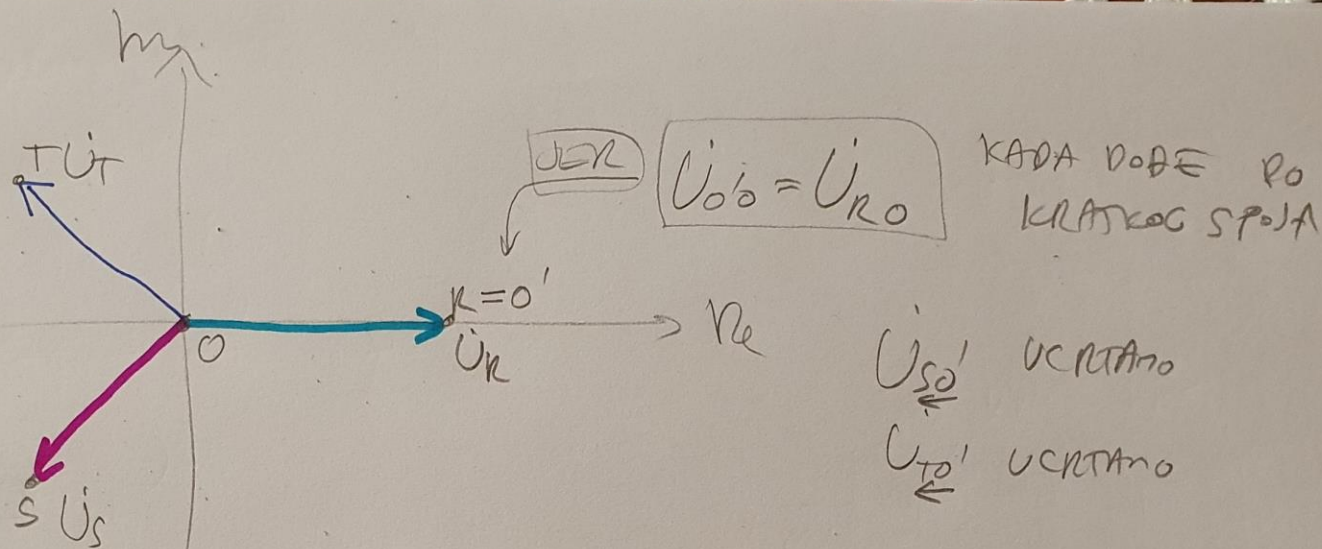 Im
T U̇T
JER
U̇O'O = U̇RO
KADA DOĐE DO
KRATKOG SPOJA
R=O'
Re
O
U̇R
U̇SO' UCRTAMO
U̇TO' UCRTAMO
S U̇S